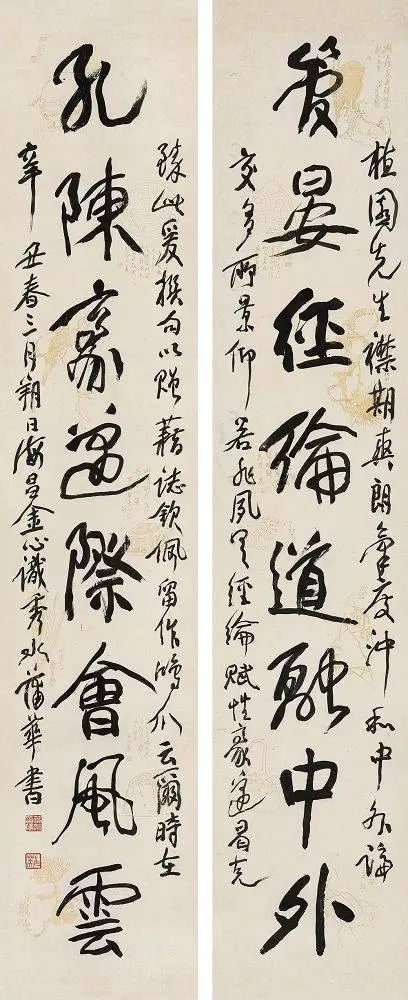 植園先生襟期爽朗氣度沖和中外諦
管晏經綸道融中外
交多所景仰若非夙具經綸賦性豪邁曷克
臻此爰撰句以贈藉誌欽佩留作鴻爪云爾時在
孔陳豪邁際會風雲
辛丑春三月朔日海昌金心識秀水蒲華書